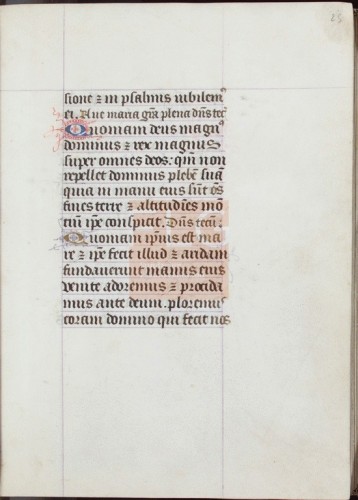 23
sione ⁊ in psalmis iubilemꝰ
ei. Aue maria gr̃a plena dñs tec̃
Quoniam deus magnꝰ
dominus ⁊ rex magnus
super omnes deos: qm̃ non
repellet dominus plebẽ suã
quia in manu eius sunt õs
fines terre ⁊ altitudĩes mon
tiũ ip̃e conspicit. Dñs tecũ:
Quoniam ip̃ius est ma
re ⁊ ip̃e fecit illud ⁊ aridam
fundauerunt manus eius
venite adoremus ⁊ procida
mus ante deum. ploremus
coram domino qui fecit nos